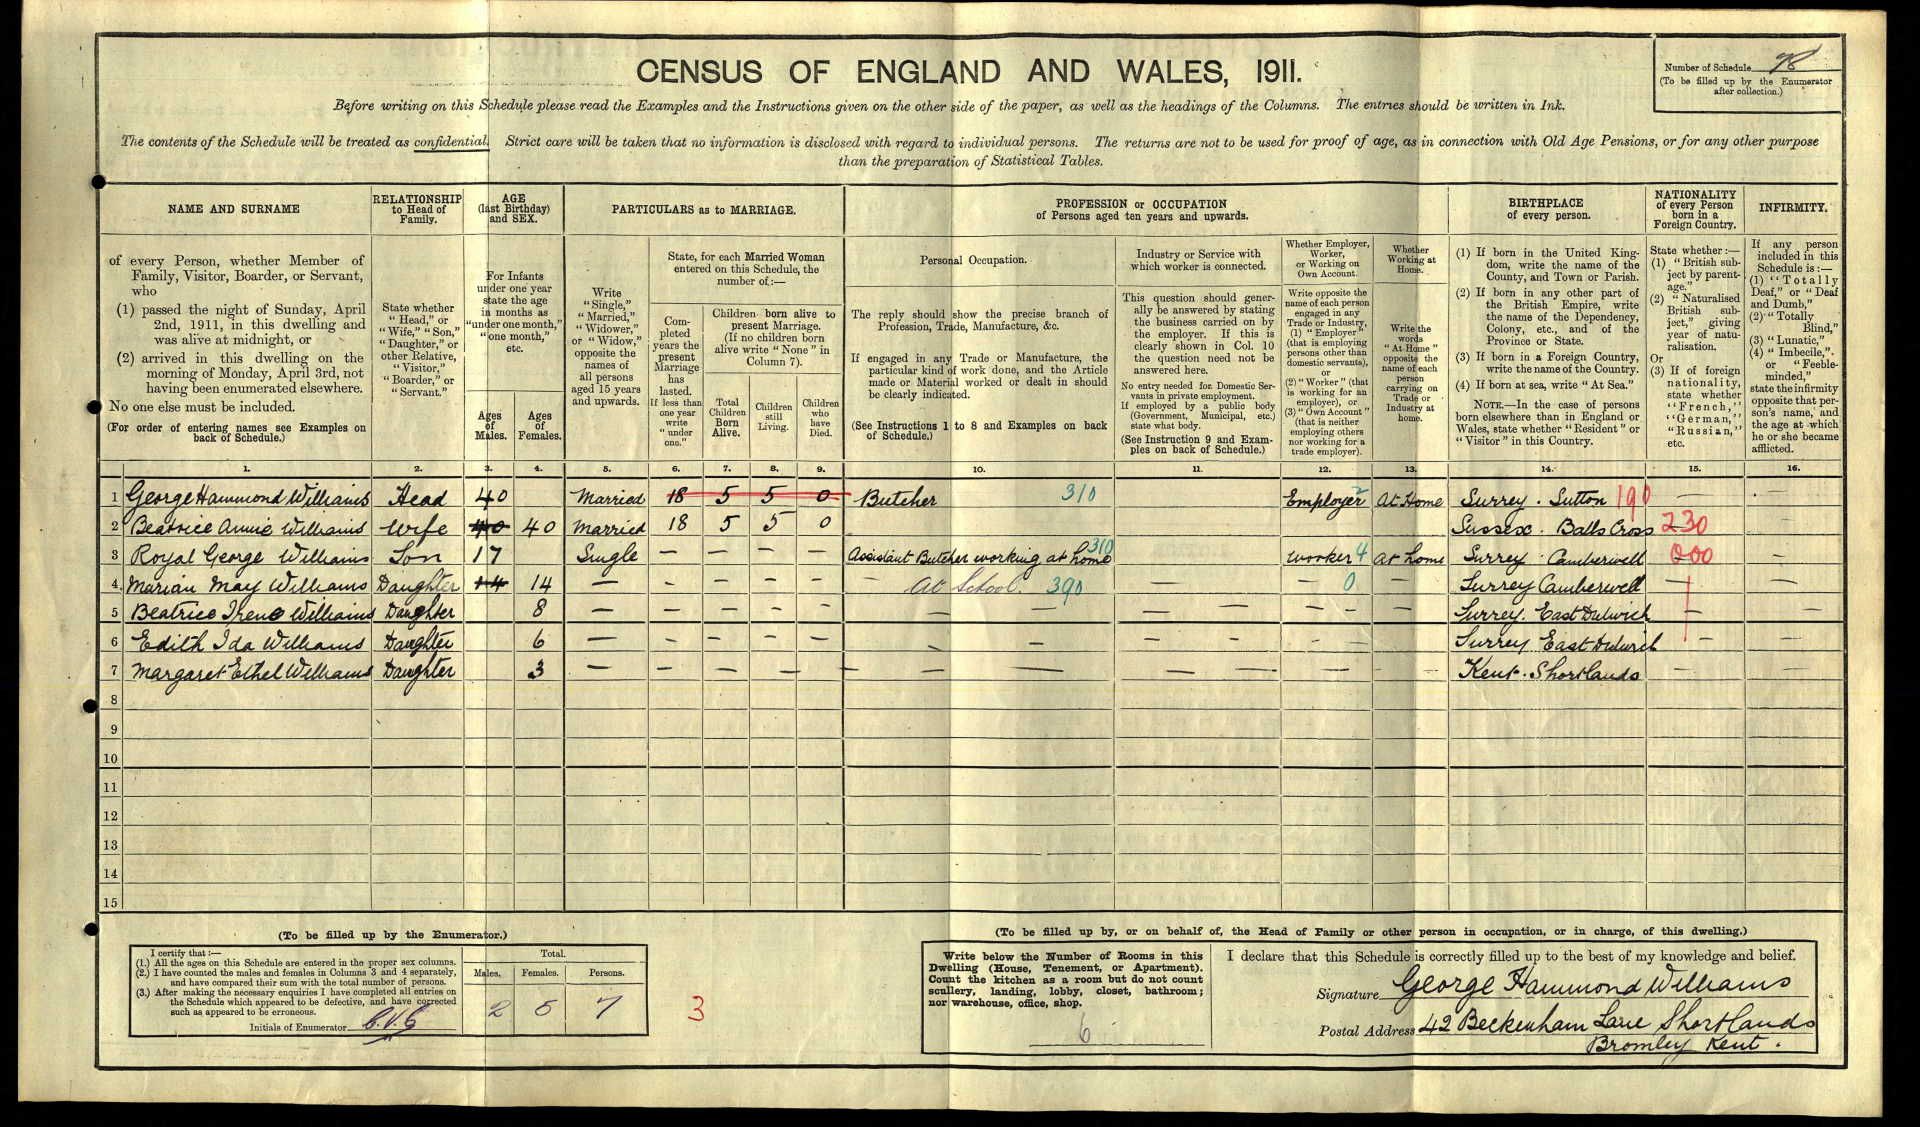 CENSUS OF ENGLAND AND WALES, 1911.
Number of Schedule 78
(To be filled up by the Enumerator
after collection.)
Before writing on this Schedule please read the Examples and the Instructions given on the other side of the paper, as well as the headings of the Columns. The entries should be written in Ink.
The contents of the Schedule will be treated as confidential. Strict care will be taken that no information is disclosed with regard to individual persons. The returns are not to be used for proof of age, as in connection with Old Age Pensions, or for any other purpose
than the preparation of Statistical Tables.
NAME AND SURNAME
of every Person, whether Member of
Family, Visitor, Boarder, or Servant,
who
(1) passed the night of Sunday, April
2nd, 1911, in this dwelling and
was alive at midnight, or
(2) arrived in this dwelling on the
morning of Monday, April 3rd, not
having been enumerated elsewhere.
No one else must be included.
(For order of entering names see Examples on
back of Schedule.)
RELATIONSHIP
to Head of
Family.
State whether
"Head," or
"Wife," "Son,"
"Daughter," or
other Relative,
"Visitor,"
"Boarder," or
"Servant."
AGE
(last Birthday)
and SEX.
For Infants
under one year
state the age
in months as
"under one month,"
"one month,"
etc.
Ages
of
Males.
Ages
of
Females.
PARTICULARS as to MARRIAGE.
Write
"Single,"
"Married,"
"Widower,"
or "Widow,"
opposite the
names of
all persons
aged 15 years
and upwards.
State, for each Married Woman
entered on this Schedule, the
number of:—
Com-
pleted
years the
present
Marriage
has
lasted.
If less than
one year
write
"under
one."
Children born alive to
present Marriage.
(If no children born
alive write "None" in
Column 7).
Total
Children
Born
Alive.
Children
still
Living.
Children
who
have
Died.
PROFESSION or OCCUPATION
of Persons aged ten years and upwards.
Personal Occupation.
The reply should show the precise branch of
Profession, Trade, Manufacture, &c.
If engaged in any Trade or Manufacture, the
particular kind of work done, and the Article
made or Material worked or dealt in should
be clearly indicated.
(See Instructions 1 to 8 and Examples on back
of Schedule.)
Industry or Service with
which worker is connected.
This question should gener-
ally be answered by stating
the business carried on by
the employer. If this is
clearly shown in Col. 10
the question need not be
answered here.
No entry needed for Domestic Ser-
vants in private employment.
If employed by a public body
(Government, Municipal, etc.)
state what body.
(See Instruction 9 and Exam-
ples on back of Schedule.)
Whether Employer,
Worker,
or Working on
Own Account.
Write opposite the
name of each person
engaged in any
Trade or Industry,
(1) "Employer"
(that is employing
persons other than
domestic servants),
or
(2) "Worker" (that
is working for an
employer), or
(3) "Own Account"
(that is neither
employing others
nor working for a
trade employer).
Whether
Working at
Home.
Write the
words
"At Home"
opposite the
name of each
person
carrying on
Trade or
Industry at
home.
BIRTHPLACE
of every person.
(1) If born in the United King-
dom, write the name of the
County, and Town or Parish.
(2) If born in any other part of
the British Empire, write
the name of the Dependency,
Colony, etc., and of the
Province or State.
(3) If born in a Foreign Country,
write the name of the Country.
(4) If born at sea, write "At Sea."
NOTE.—In the case of persons
born elsewhere than in England or
Wales, state whether "Resident" or
"Visitor" in this Country.
NATIONALITY
of every Person
born in a
Foreign Country.
State whether:—
(1) "British sub-
ject by parent-
age."
(2) "Naturalised
British sub-
ject," giving
year of natu-
ralisation.
Or
(3) If of foreign
nationality,
state whether
"French,"
"German,"
"Russian,"
etc.
INFIRMITY.
If any person
included in this
Schedule is:—
(1) "Totally
Deaf," or "Deaf
and Dumb,"
(2) "Totally
Blind,"
(3) "Lunatic,"
(4) "Imbecile,"
or "Feeble-
minded,"
state the infirmity
opposite that per-
son's name, and
the age at which
he or she became
afflicted.
1. 2. 3. 4. 5. 6. 7. 8. 9. 10. 11. 12. 13. 14. 15. 16.
1 George Hammond Williams Head 40 Married 18 5 5 0 Butcher 310 Employer 2 At Home Surrey. Sutton 190 —
2 Beatrice Annie Williams Wife 40 40 Married 18 5 5 0 Sussex. Balls Cross 230 —
3 Royal George Williams Son 17 Single — — — — Assistant Butcher working at home 310 Worker 4 At home Surrey Camberwell 000 —
4 Marian May Williams Daughter 14 14 — — — — — At School. 390 — 0 — Surrey Camberwell —
5 Beatrice Irene Williams Daughter 8 — — — — — — — — — Surrey. East Dulwich — —
6 Edith Ida Williams Daughter 6 — — — — — — — — — Surrey East Dulwich — —
7 Margaret Ethel Williams Daughter 3 — — — — — — — — — Kent. Shortlands
8
9
10
11
12
13
14
15
(To be filled up by the Enumerator.)
I certify that:—
(1.) All the ages on this Schedule are entered in the proper sex columns.
(2.) I have counted the males and females in Columns 3 and 4 separately,
and have compared their sum with the total number of persons.
(3.) After making the necessary enquiries I have completed all entries on
the Schedule which appeared to be defective, and have corrected
such as appeared to be erroneous.
Initials of Enumerator
Total.
Males. Females. Persons.
2 5 7
3
(To be filled up by, or on behalf of, the Head of Family or other person in occupation, or in charge, of this dwelling.)
Write below the Number of Rooms in this
Dwelling (House, Tenement, or Apartment).
Count the kitchen as a room but do not count
scullery, landing, lobby, closet, bathroom;
nor warehouse, office, shop.
6
I declare that this Schedule is correctly filled up to the best of my knowledge and belief.
Signature George Hammond Williams
Postal Address 42 Beckenham Lane Shortlands
Bromley Kent.